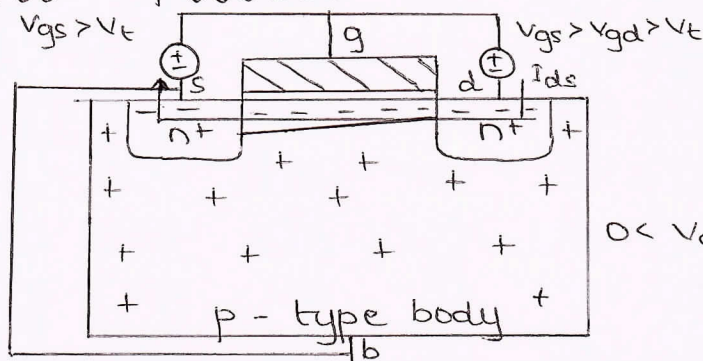 Vgs > Vt
g
Vgs > Vgd > Vt
s
d
Ids
n+
n+
p - type body
b